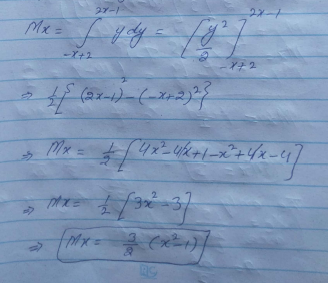 Mx = ∫_{-x+2}^{2x-1} y dy = [y²/2]_{-x+2}^{2x-1}
⇒ 1/2 { (2x-1)² - (-x+2)² }
⇒ Mx = 1/2 [4x² - 4x + 1 - x² + 4x - 4]
⇒ Mx = 1/2 [3x² - 3]
⇒ [Mx = 3/2 (x² - 1)]